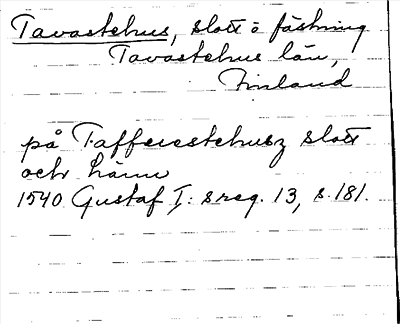 Tavastehus, slott o fästning
Tavastehus län,
Finland
på Tafferestehusz slott
och hänn
1540 Gustaf I: s reg. 13, s. 181.